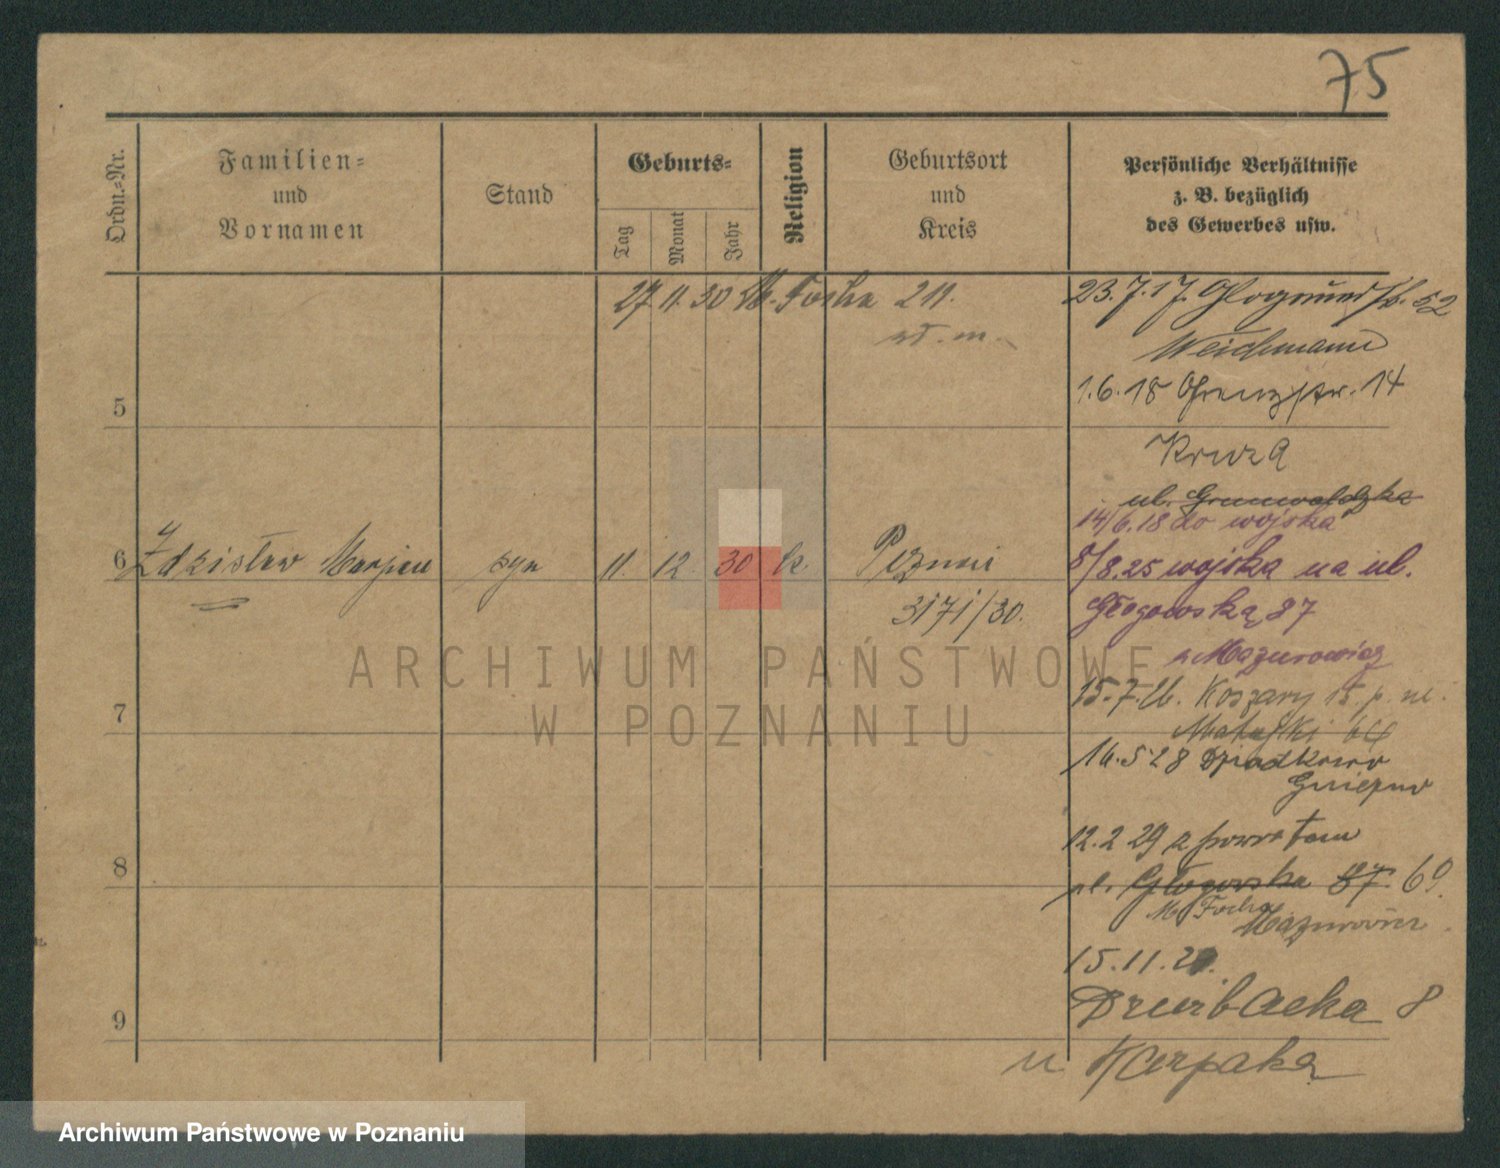 75
Ordn.-Nr.
Familien-
und
Vornamen
Stand
Geburts-
Tag
Monat
Jahr
Religion
Geburtsort
und
Kreis
Persönliche Verhältnisse
z. B. bezüglich
des Gewerbes usw.
27 11. 30 M. Focha 211.
23.7.17. 52
Weichmann
1.6.18 Grenzstr. 14
5
ul. Grunwaldzka
14/6.18 do wojska
6 Zdzisław Marjan syn 11. 12. 30 k. Poznań
3171/30.
8/8.25 wojska na ul.
Głogowską 87
Mazurowicz
ARCHIWUM PAŃSTWOWE
W POZNANIU
7
15.7.26. Koszary 15 p.
Matejki
16.5 28
Gniezno
12.2 29 z powrotem
8
ul. Głogowska 87. 69.
M. Focha
Mazurowicz
15.11.29.
Drużbacka 8
9
u Karpaka
Archiwum Państwowe w Poznaniu